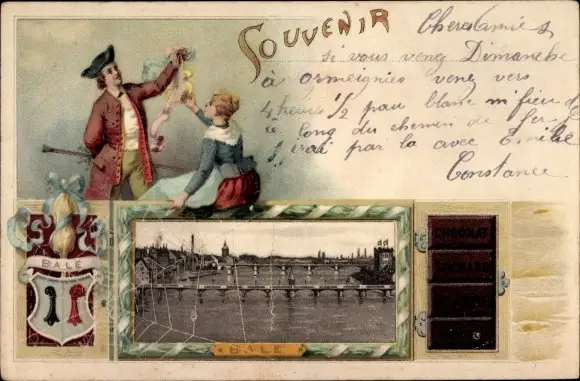 SOUVENIR
Cheres amies
si vous venez Dimanche
à ormeignies venez vers
4 heures 1/2 pau blanc m'fieu d
à long du chemin de fer
J'irai par la avec Emélie
Constance
BALE
CHOCOLAT
SUCHARD
BALE